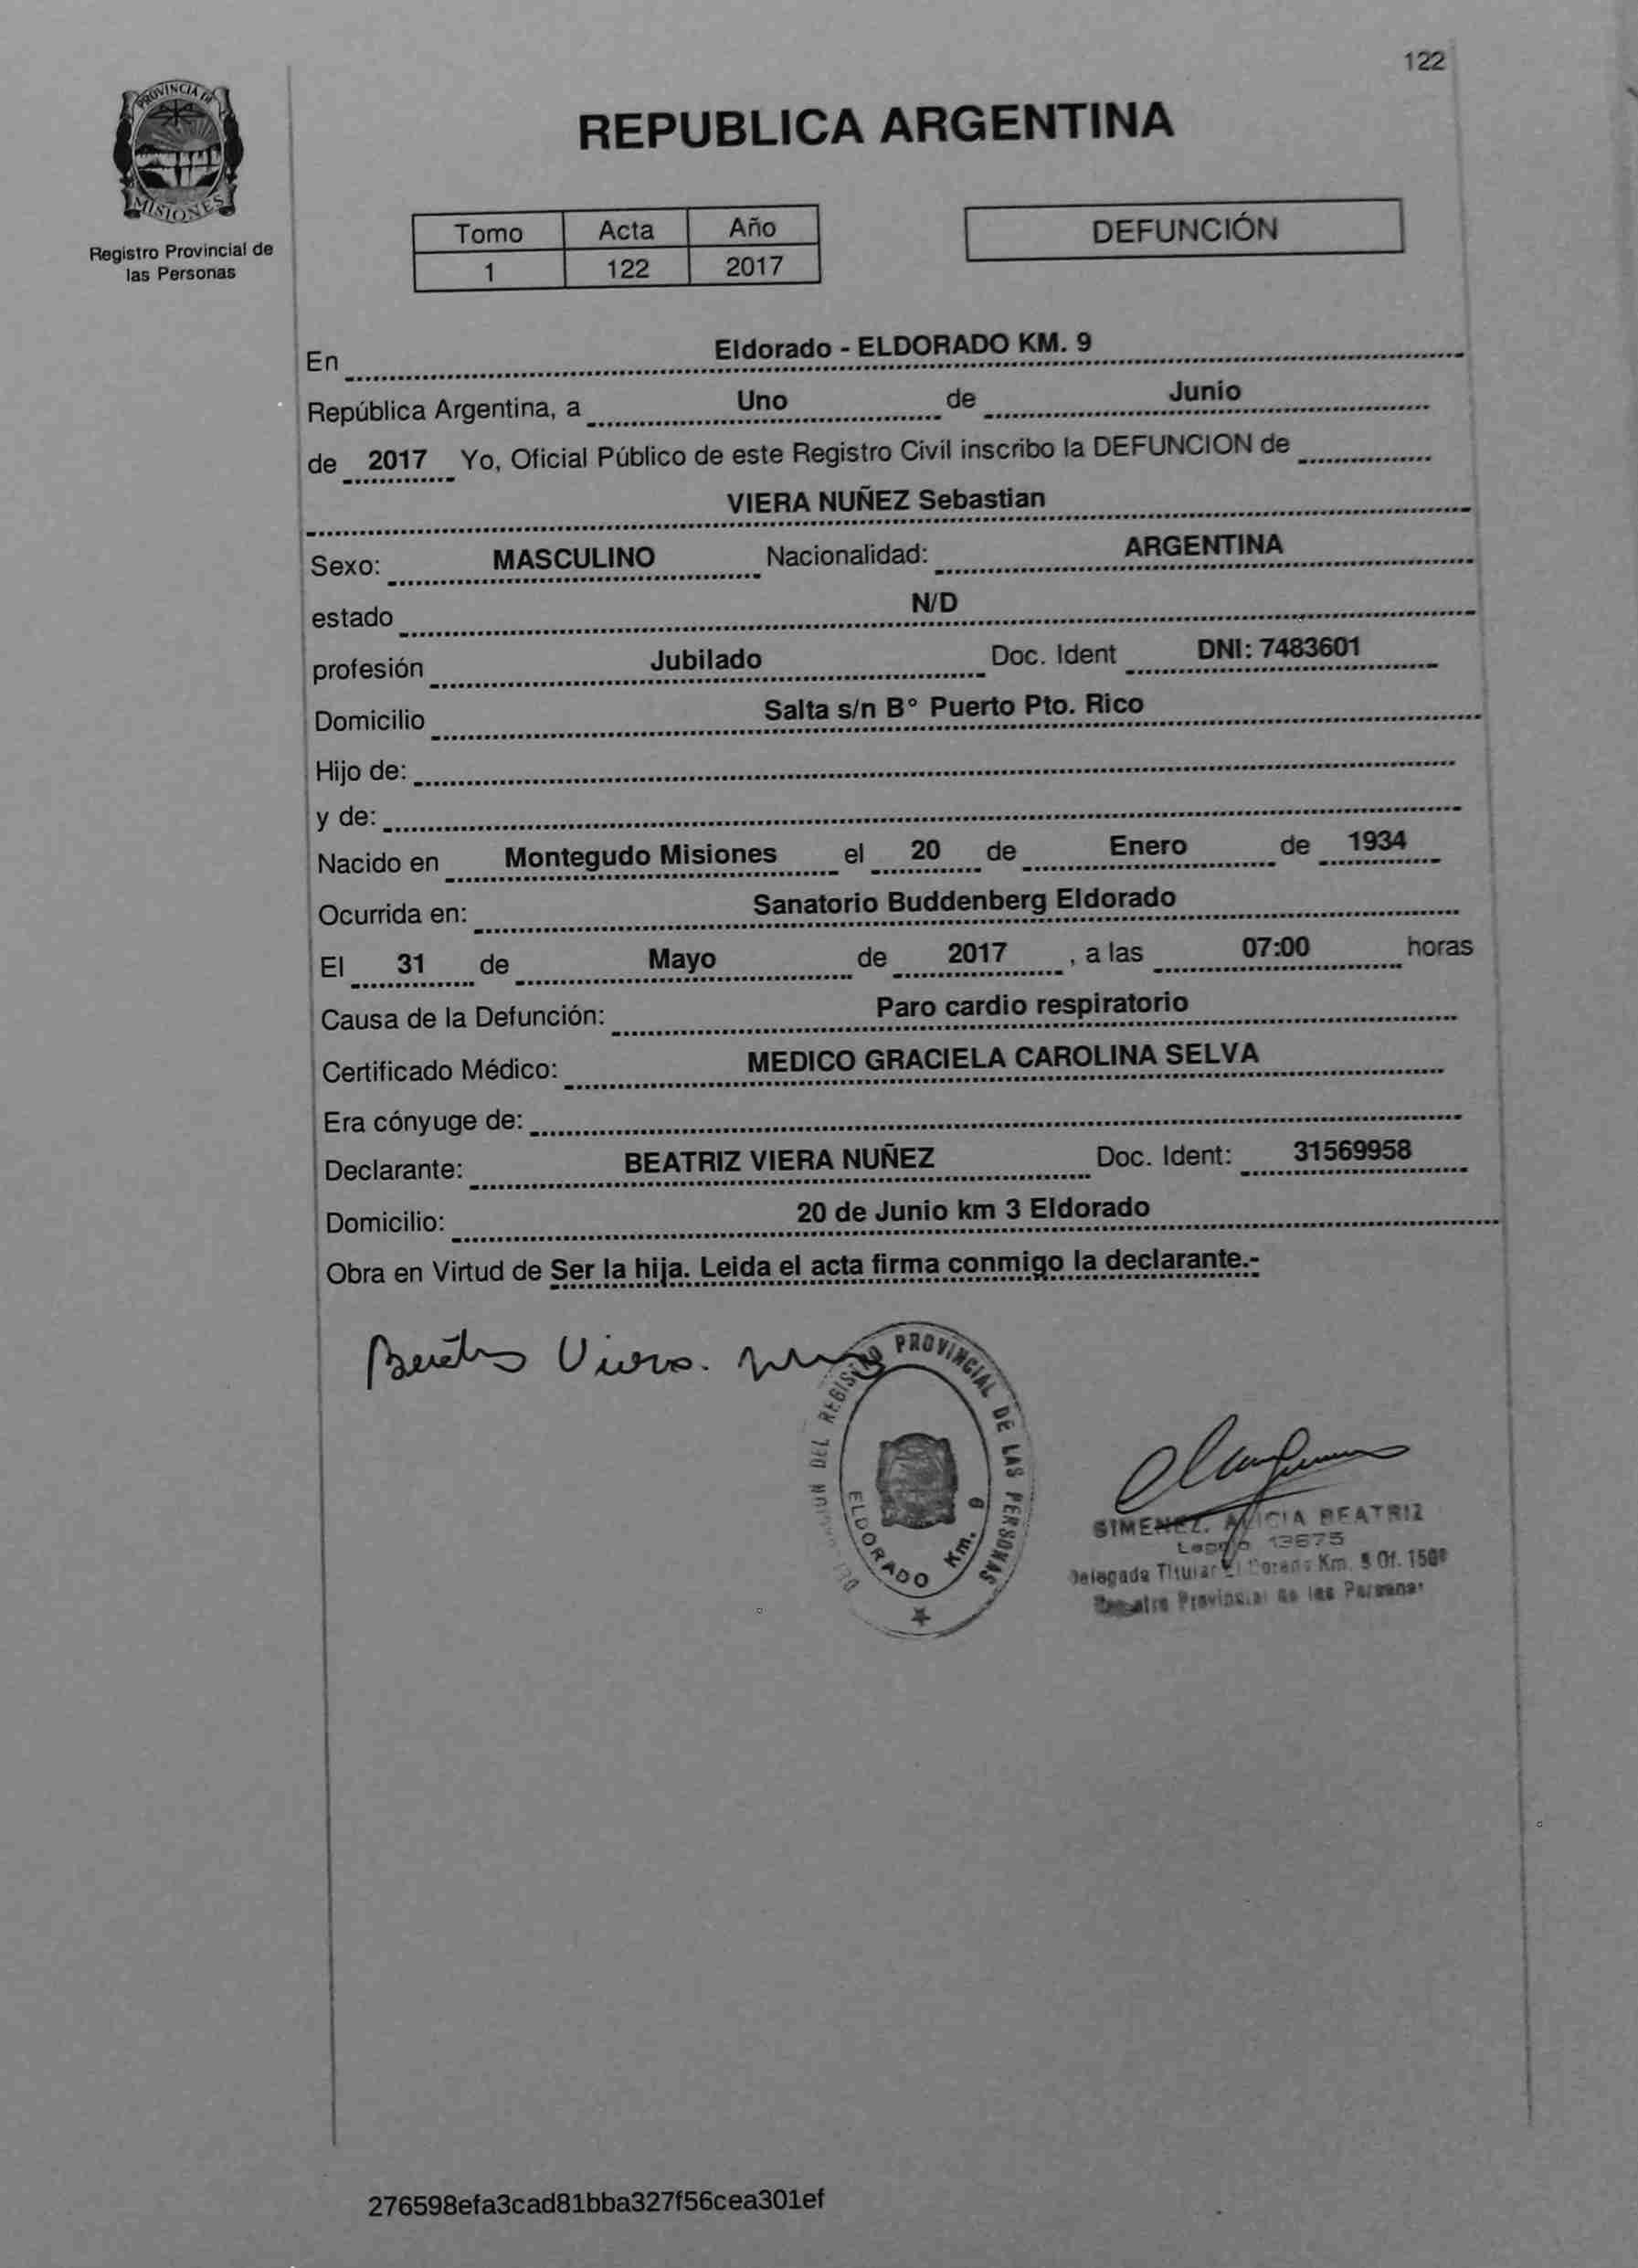 122
PROVINCIA DE
MISIONES
Registro Provincial de
las Personas
REPUBLICA ARGENTINA
Tomo Acta Año
1 122 2017
DEFUNCIÓN
En Eldorado - ELDORADO KM. 9
República Argentina, a Uno de Junio
de 2017 Yo, Oficial Público de este Registro Civil inscribo la DEFUNCION de
VIERA NUÑEZ Sebastian
Sexo: MASCULINO Nacionalidad: ARGENTINA
estado N/D
profesión Jubilado Doc. Ident DNI: 7483601
Domicilio Salta s/n B° Puerto Pto. Rico
Hijo de:
y de:
Nacido en Montegudo Misiones el 20 de Enero de 1934
Ocurrida en: Sanatorio Buddenberg Eldorado
El 31 de Mayo de 2017 , a las 07:00 horas
Causa de la Defunción: Paro cardio respiratorio
Certificado Médico: MEDICO GRACIELA CAROLINA SELVA
Era cónyuge de:
Declarante: BEATRIZ VIERA NUÑEZ Doc. Ident: 31569958
Domicilio: 20 de Junio km 3 Eldorado
Obra en Virtud de Ser la hija. Leida el acta firma conmigo la declarante.-
DEL REGISTRO PROVINCIAL DE LAS PERSONAS
ELDORADO Km. 9
SIMENEZ, ALICIA BEATRIZ
Legajo 13675
Delegada Titular Km. 9 Of.
Registro Provincial de las Personas
276598efa3cad81bba327f56cea301ef